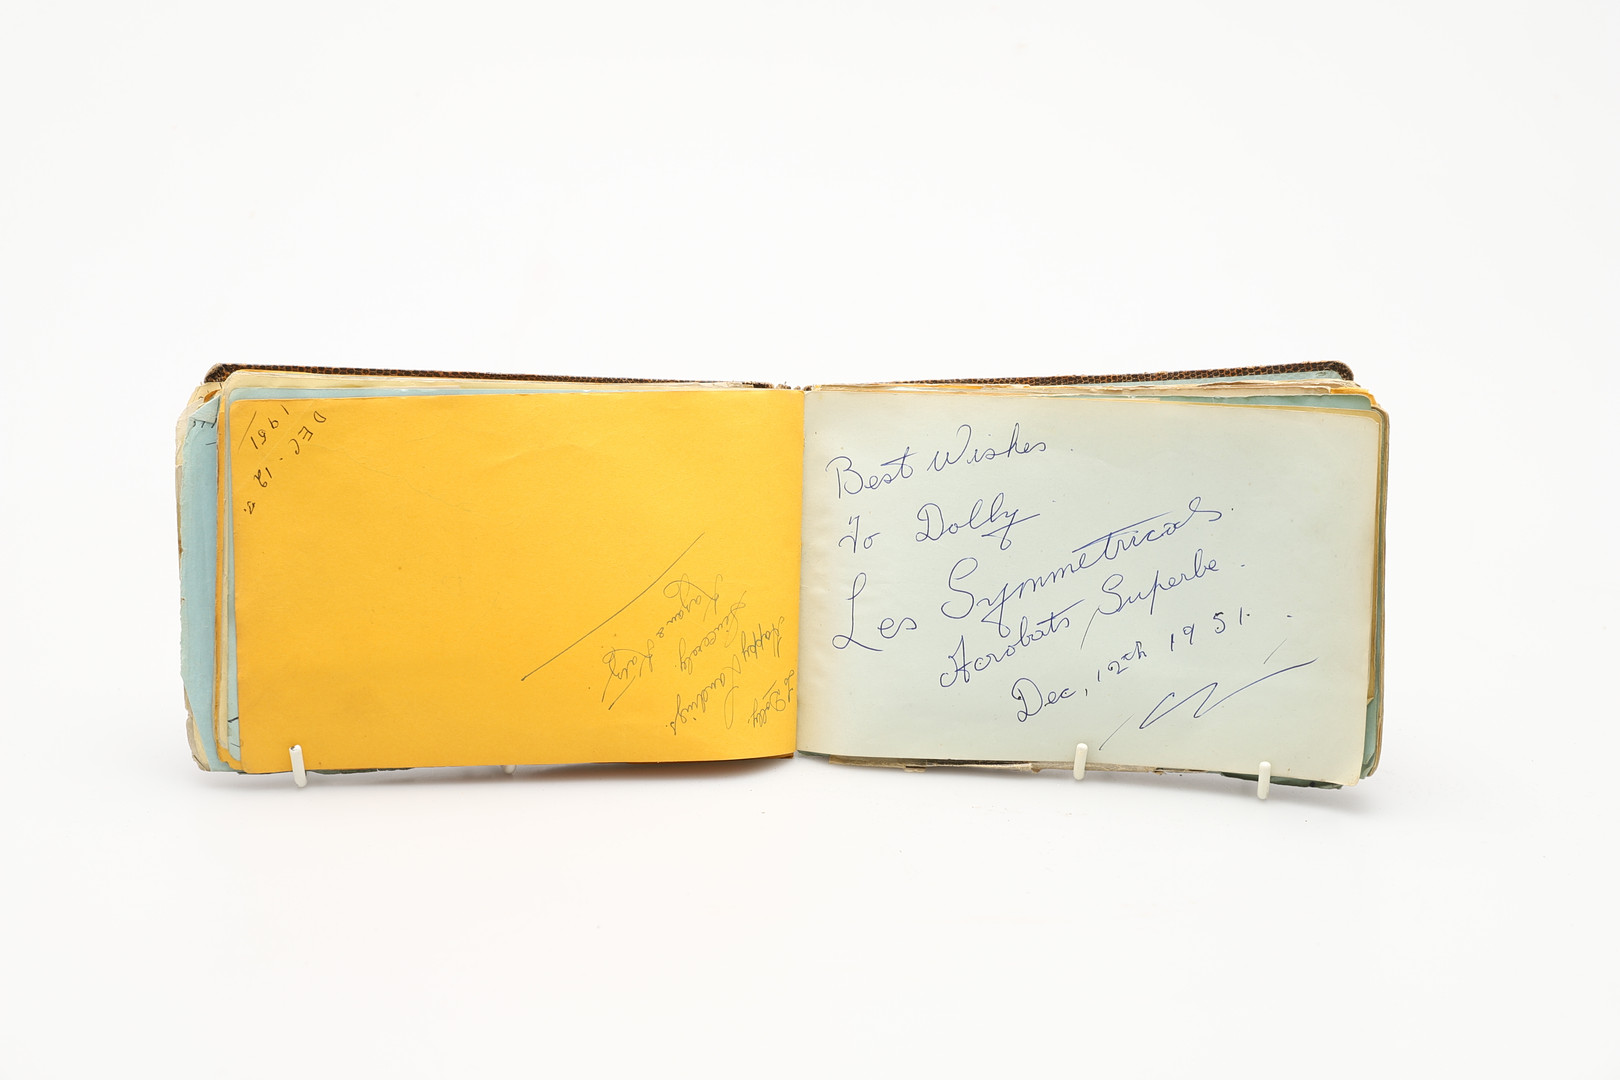 To Dolly.
Happy Landings.
Sincerely.
DEC. 12
1951
Best Wishes.
To Dolly
Les Symmetricals.
Acrobats Superbe.
Dec, 12th 1951.